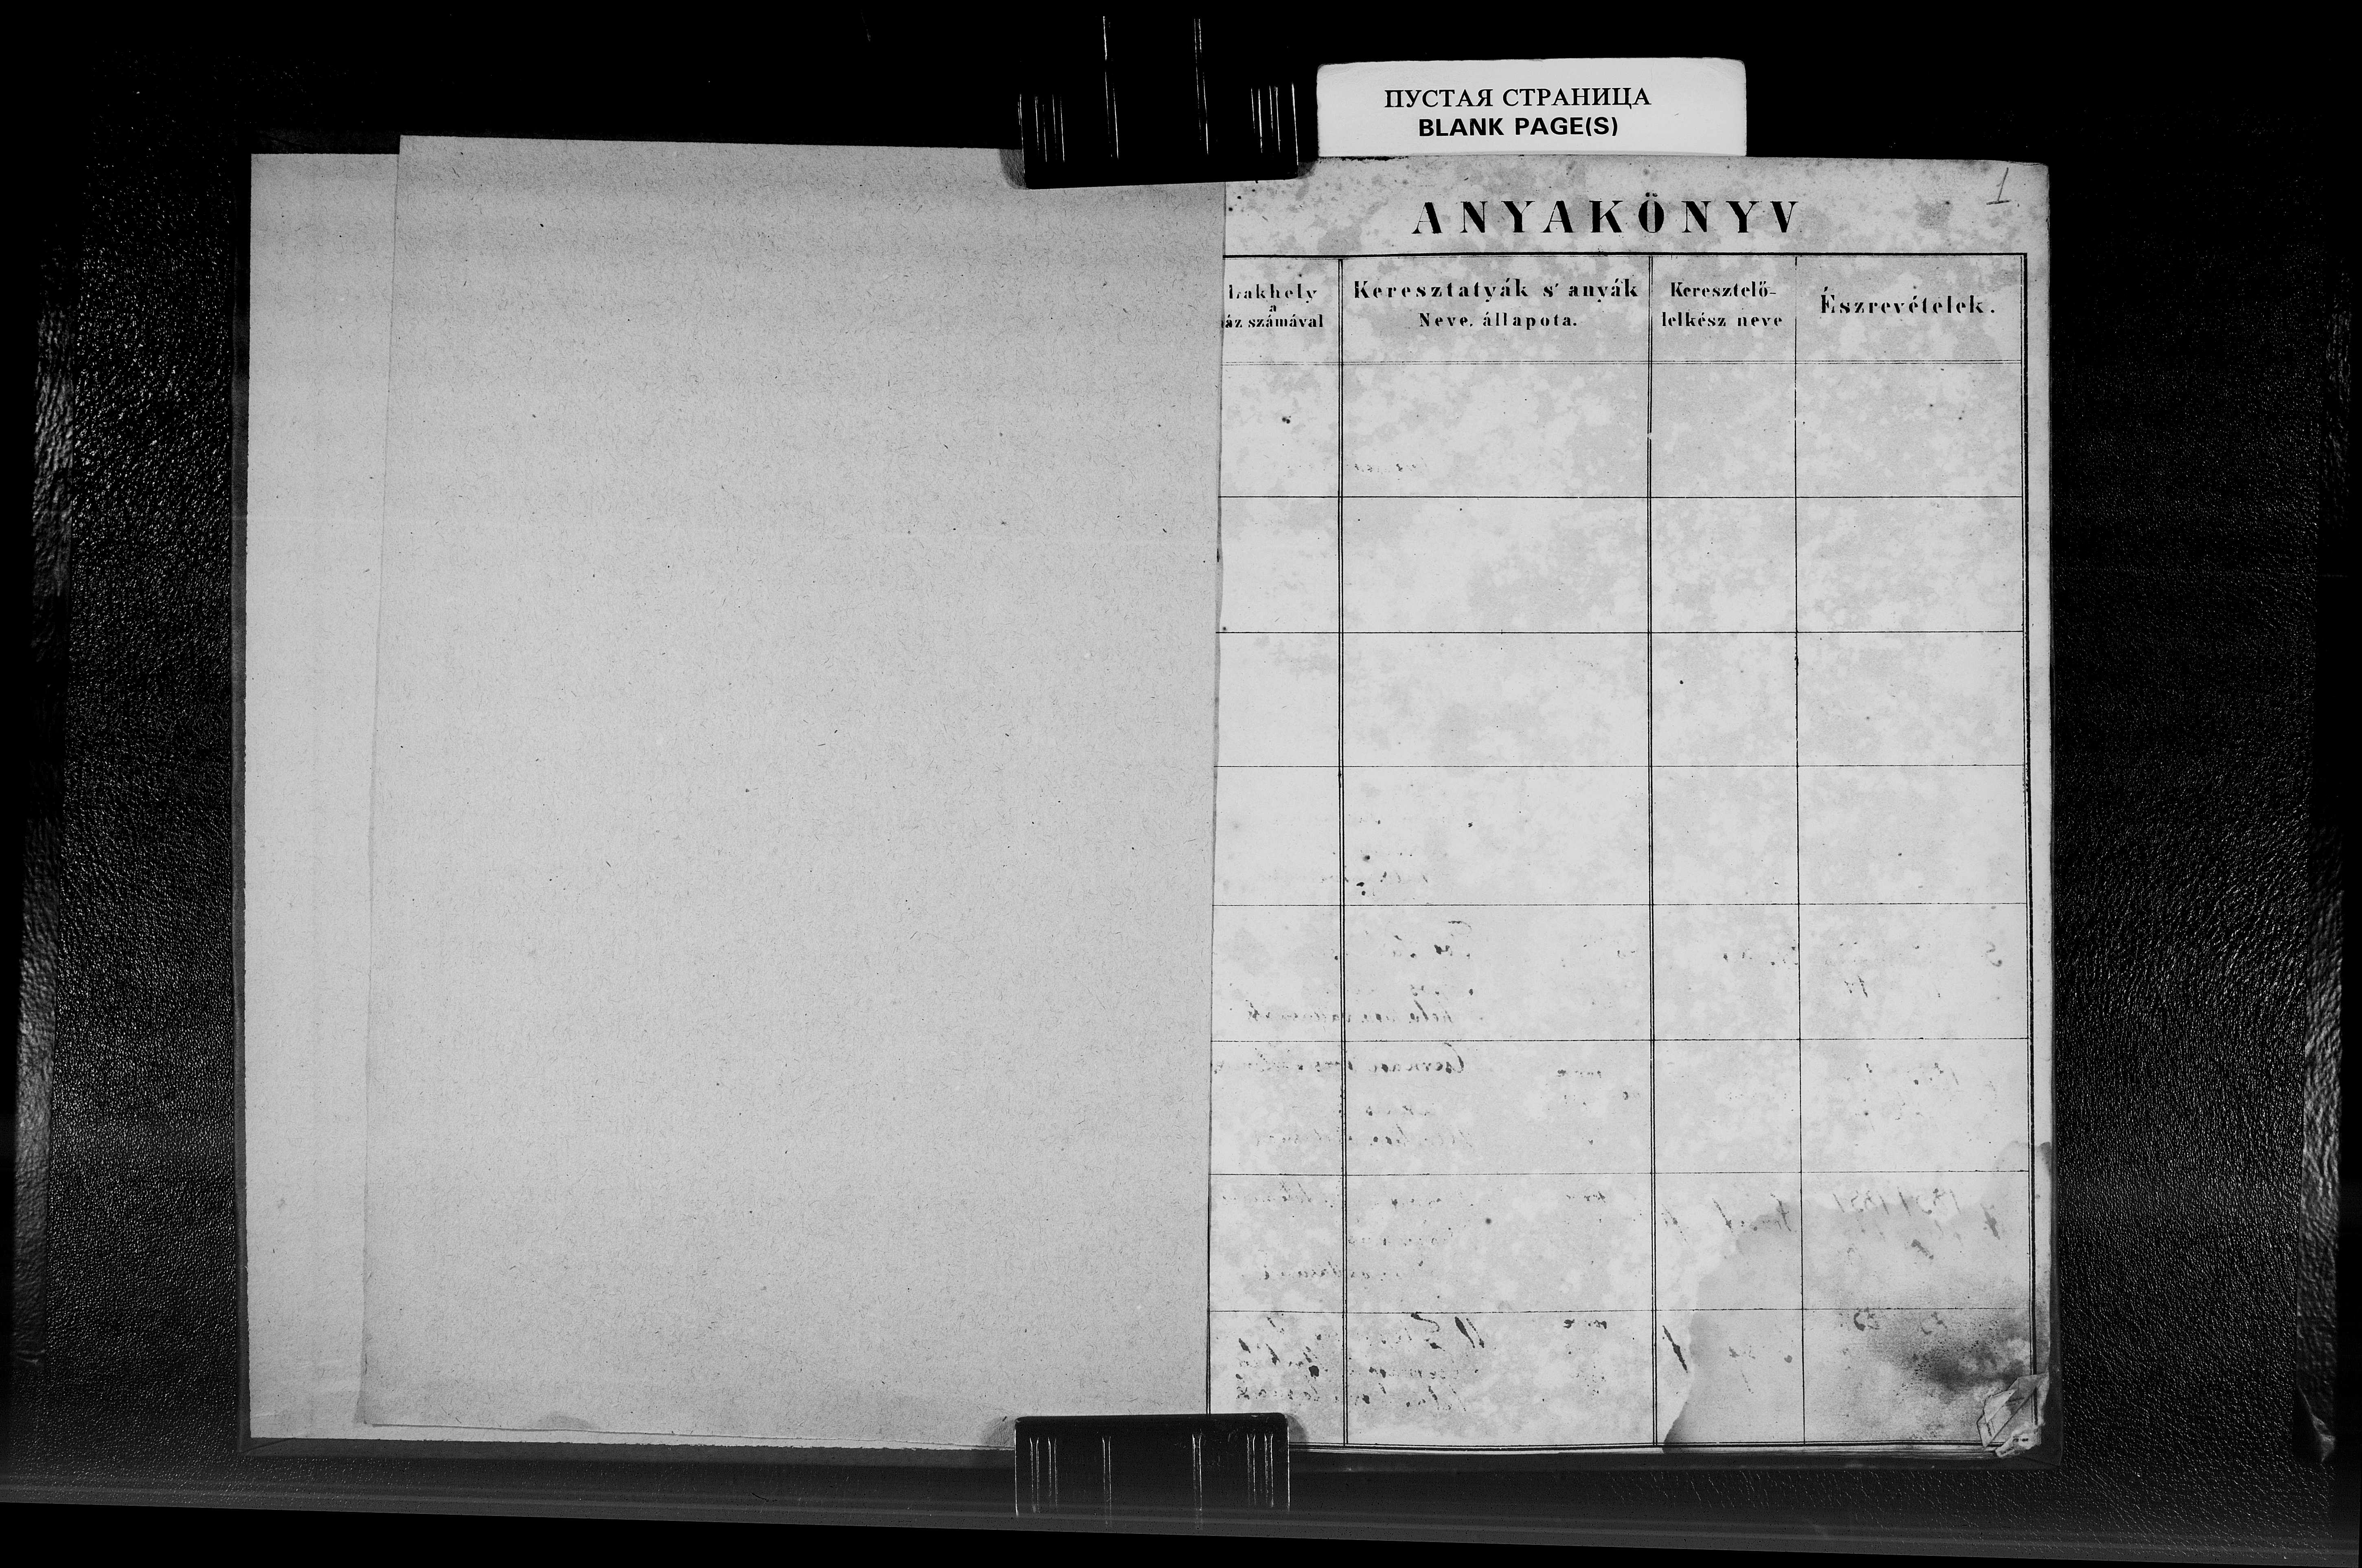 ПУСТАЯ СТРАНИЦА
BLANK PAGE(S)
1
ANYAKÖNYV
Lakhely
a
ház számával
Keresztatyák s' anyák
Neve, állapota.
Keresztelő-
lelkész neve
Észrevételek.